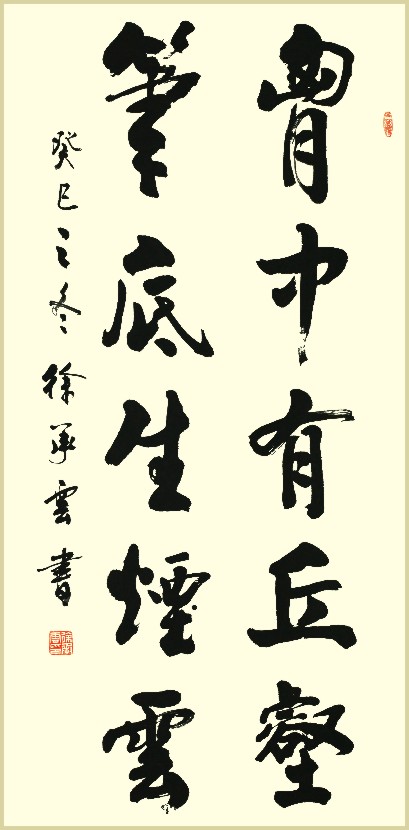 胷中有丘壑
筆底生煙雲
癸巳之冬徐承雲書